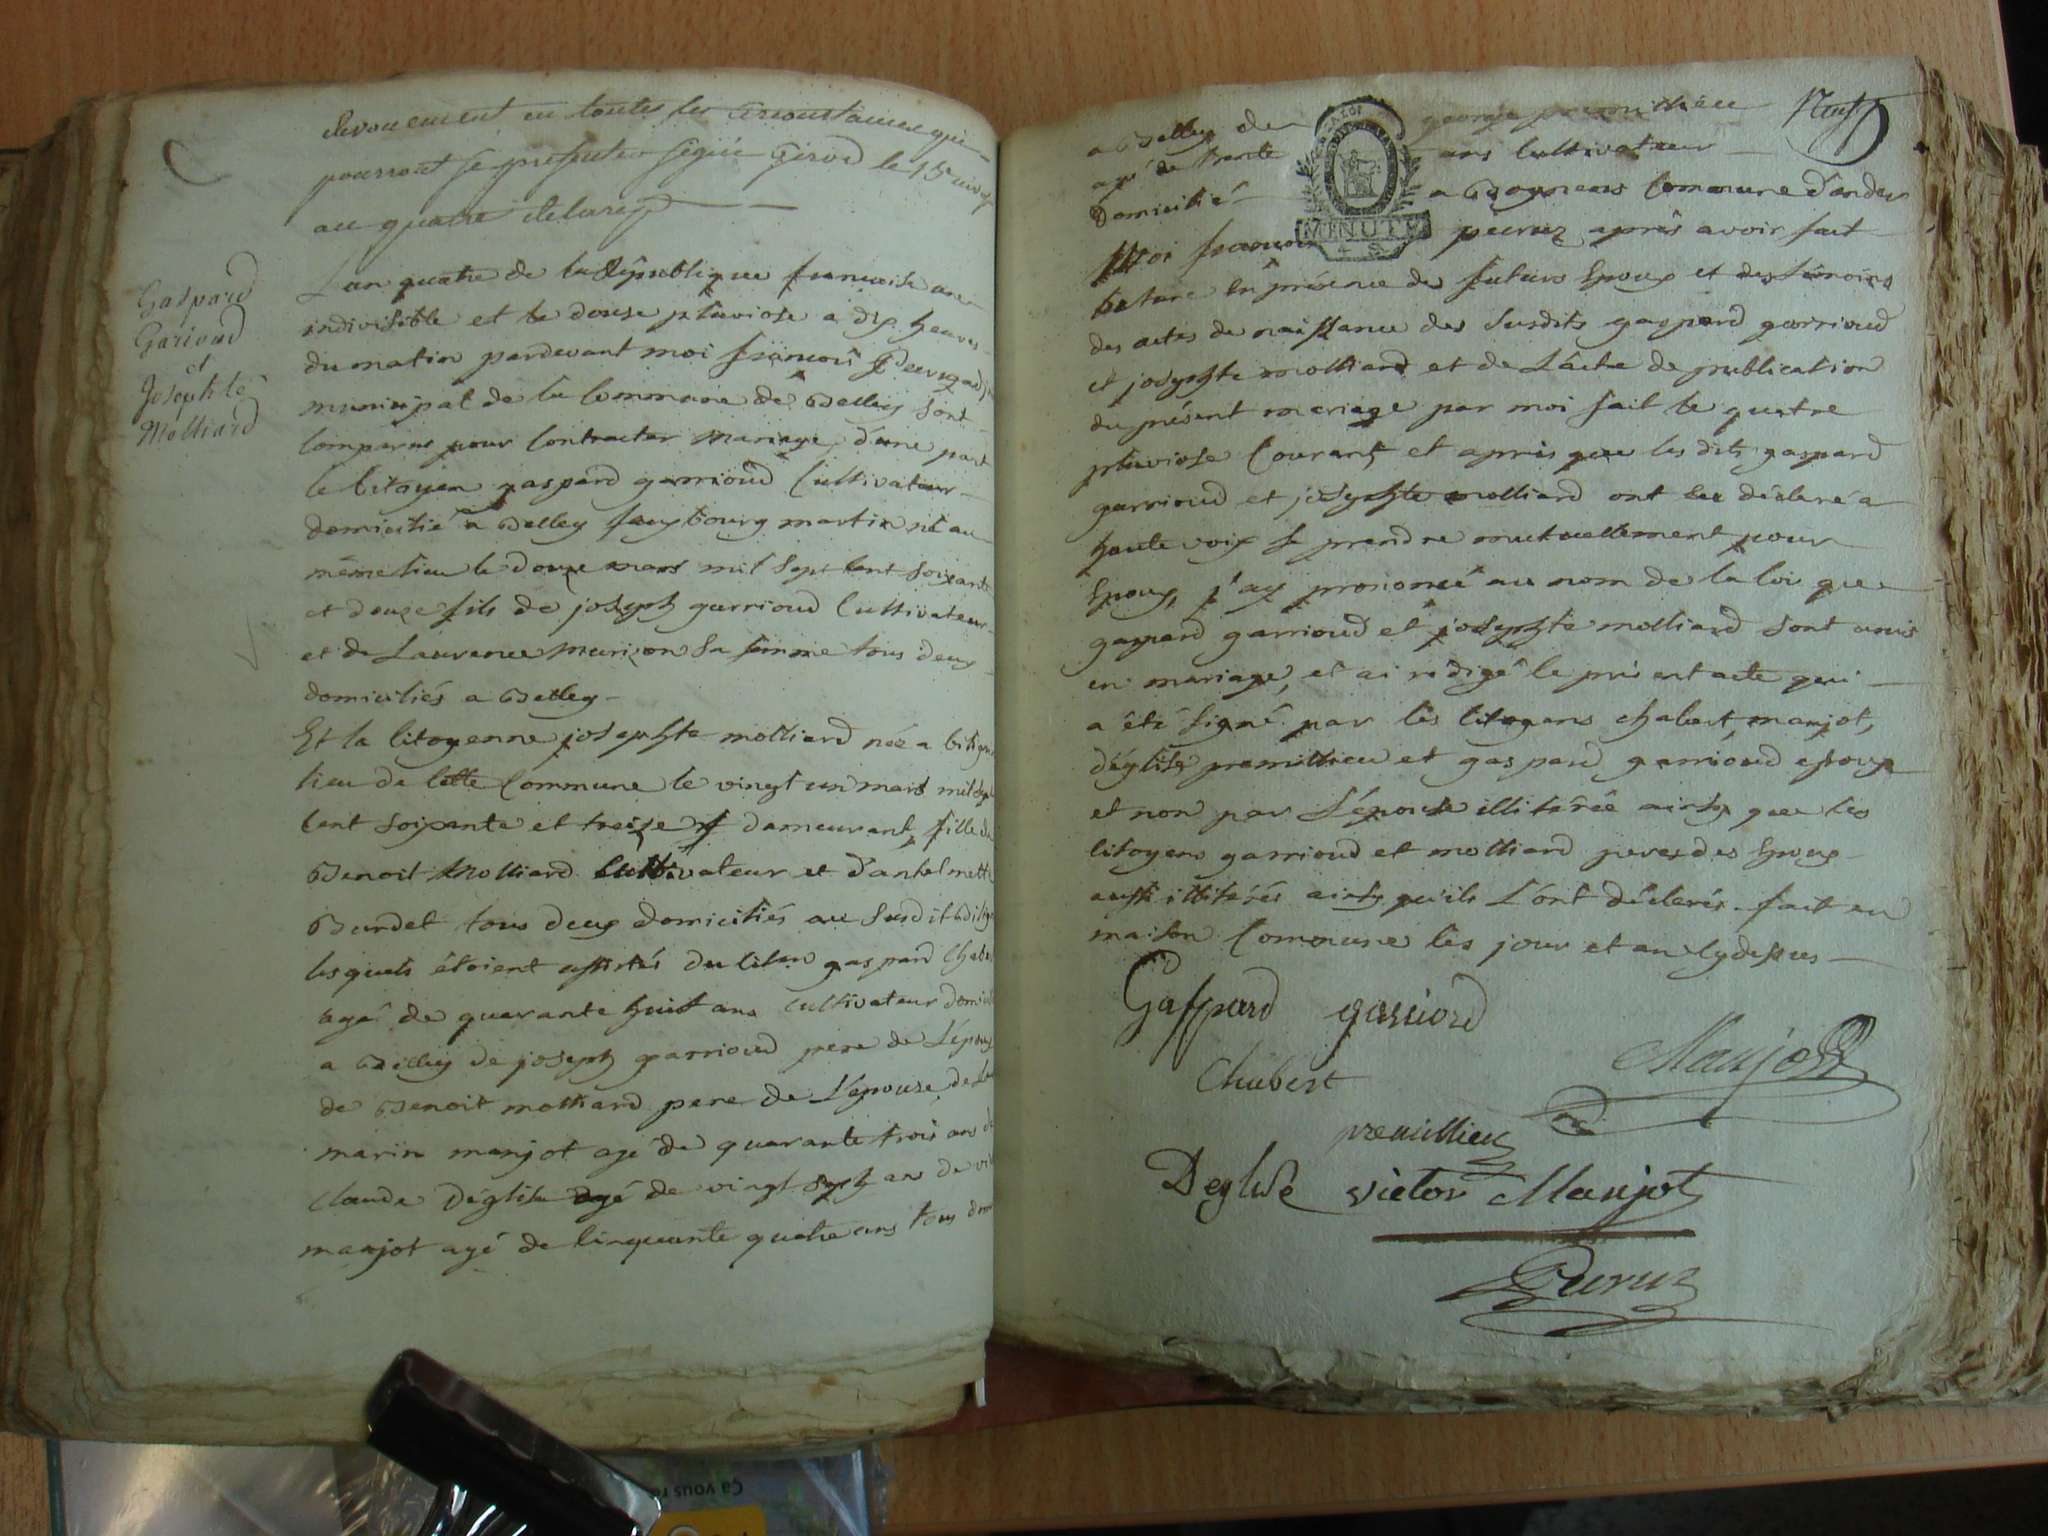 devouement en toutes les circonstances qui
pourront se presenter signée Girod le 15 nivose
au quatre
Gaspard
Garioud
et
Josephte
Molliard
L'an quatre de la République francoise une
indivisible et le douse pluviose a dix heures
du matin pardevant moi francois Peeruz adj
municipal de la Commune de Belley sont
Comparus pour Contracter mariage, d'une part
le Citoyen gaspard garrioud Cultivateur
domicilié a Belley fauxbourg martin né au
même lieu le douze mars mil sept cent soixante
et douze fils de joseph garrioud Cultivateur
et de Laurence marizon sa femme tous deux
domiciliés a Belley
Et la Citoyenne josephte molliard née a
lieu de Cette Commune le vingt un mars mil sept
cent soixante et treize y demeurant, fille de
Benoit Molliard Cultivateur et d'anthelmette
Burdet tous deux domiciliés au susdit
lesquels étoient assistés du Citen gaspard Chabe
agé de quarante huit ans Cultivateur domici
a Billey de joseph garrioud pere de L'époux
de Benoit molliard pere de L'epouse, de
marin manjot agé de quarante trois ans de
claude Déglise agé de vingt sept ans de vi
manjot agé de Cinquante quatre ans tous dom
a Belley de george premillieu
neuf
agé de trente ans Cultivateur
domicilié a Bognens Commune d'andert
RF LA LOI
MINUTE
4 S
Moi francois peeruz après avoir fait
lecture en présence des futurs Epoux et des témoins
des actes de naissance des susdits gaspard garrioud
et josephte molliard et de L'acte de publication
du présent mariage par moi fait le quatre
pluviose Courant et après que les dits gaspard
garrioud et josephte molliard ont eu déclaré a
haute voix se prendre mutuellement pour
Epoux, j'ay prononcé au nom de la loi que
gaspard garrioud et josephte molliard sont unis
en mariage, et ai redigé le présent acte qui
a êté signé par les Citoyens chabert, manjot,
déglise, premillieu et gaspard garrioud epoux
et non par L'épouse illiterée ainsy que les
Citoyens garrioud et molliard peres des Epoux
aussi illiterés ainsy qu'ils L'ont déclarés. fait en
maison Commune les jour et an Cydessus
Gaspard gariord
Manjot
Chabert
premillieu
Deglise victor Manjot
Peeruz
Ça vous